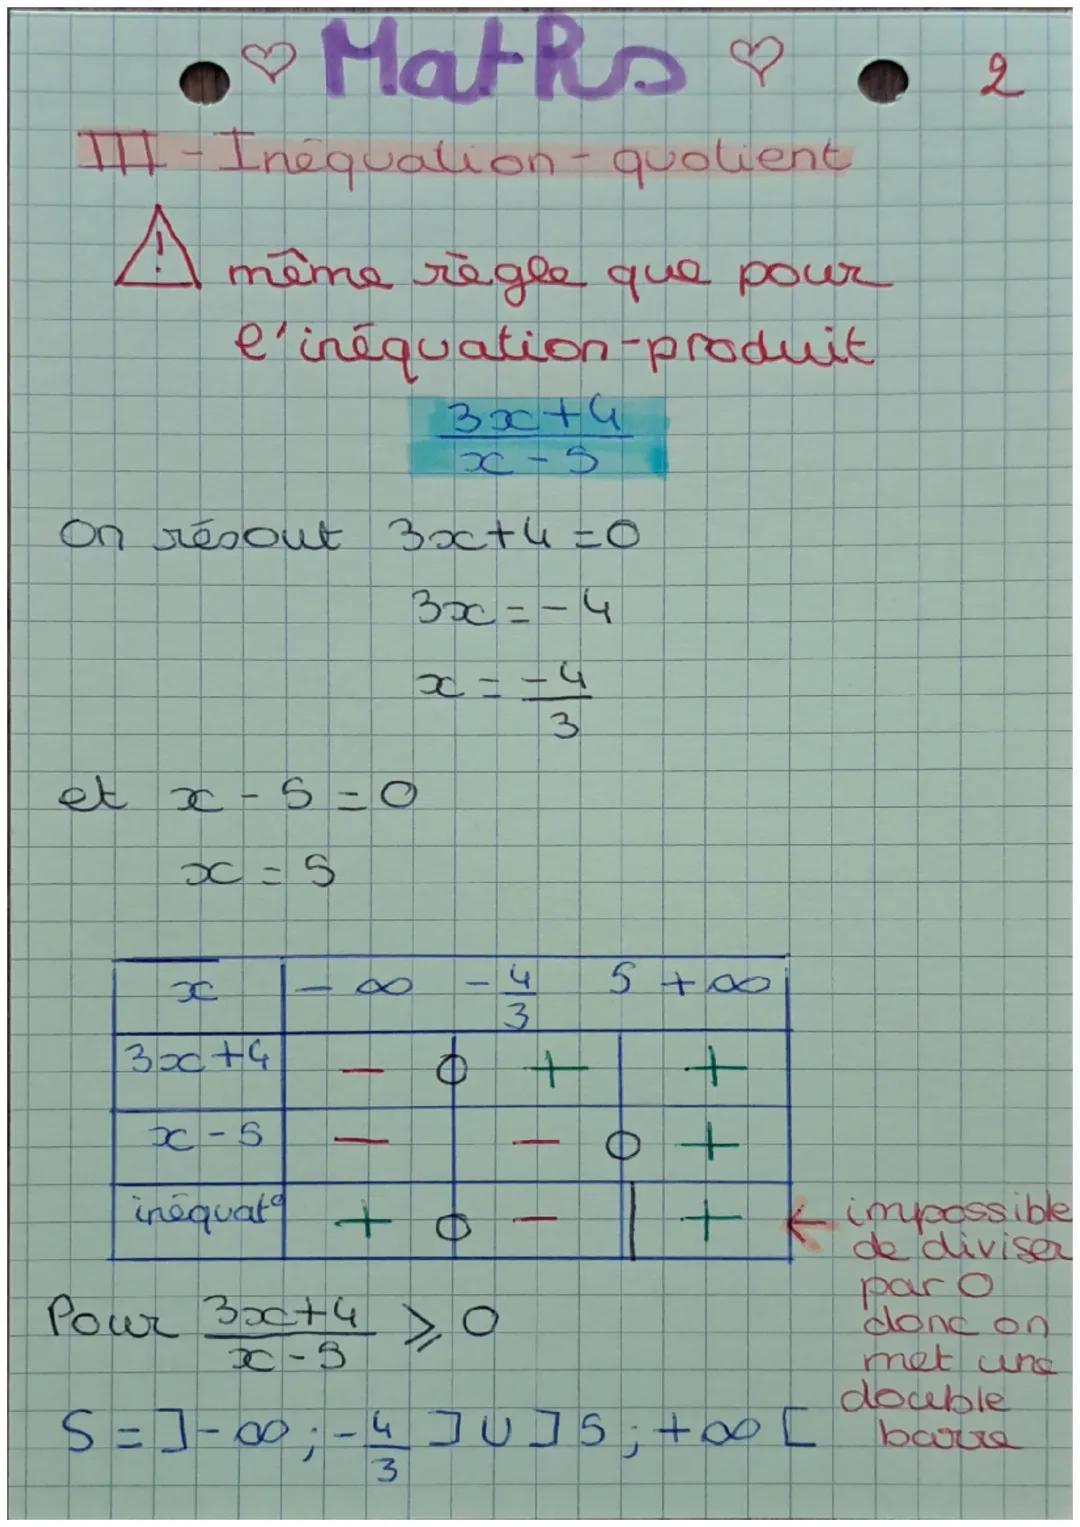 ♡ Maths ♡
2
III - Inéquation - quotient
! même règle que pour
l'inéquation-produit
3x+4
x-5
On résout 3x+4=0
3x=-4
x=-4/3
et x-5=0
x=5
x | -∞ -4/3 5 +∞
3x+4 | - 0 + +
x-5 | - - 0 +
inéquat° | + 0 - || +
← impossible
de diviser
par 0
donc on
met une
double
barre
Pour 3x+4/x-5 ⩾ 0
S=]-∞;-4/3]U]5;+∞[